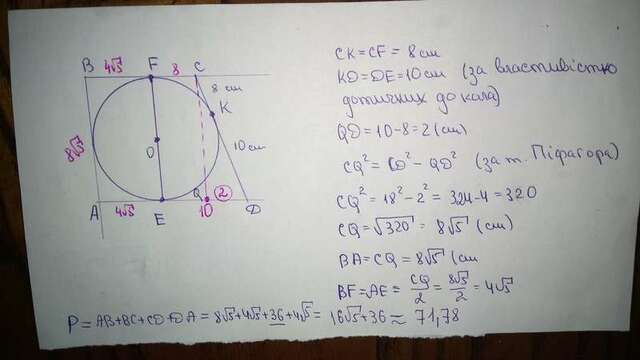 A
8√5
B
4√5
4√5
E
O
F
8
Q
10
②
C
8 см
K
10см
D
CK = CF = 8 см
KD = DE = 10 см (за властивістю
дотичних до кола)
QD = 10 - 8 = 2 (см)
CQ² = CD² - QD² (за т. Піфагора)
CQ² = 18² - 2² = 324 - 4 = 320
CQ = √320 = 8√5 (см)
BA = CQ = 8√5 (см
BF = AE = CQ/2 = 8√5/2 = 4√5
P = AB + BC + CD + DA = 8√5 + 4√5 + 36 + 4√5 = 16√5 + 36 ≈ 71,78